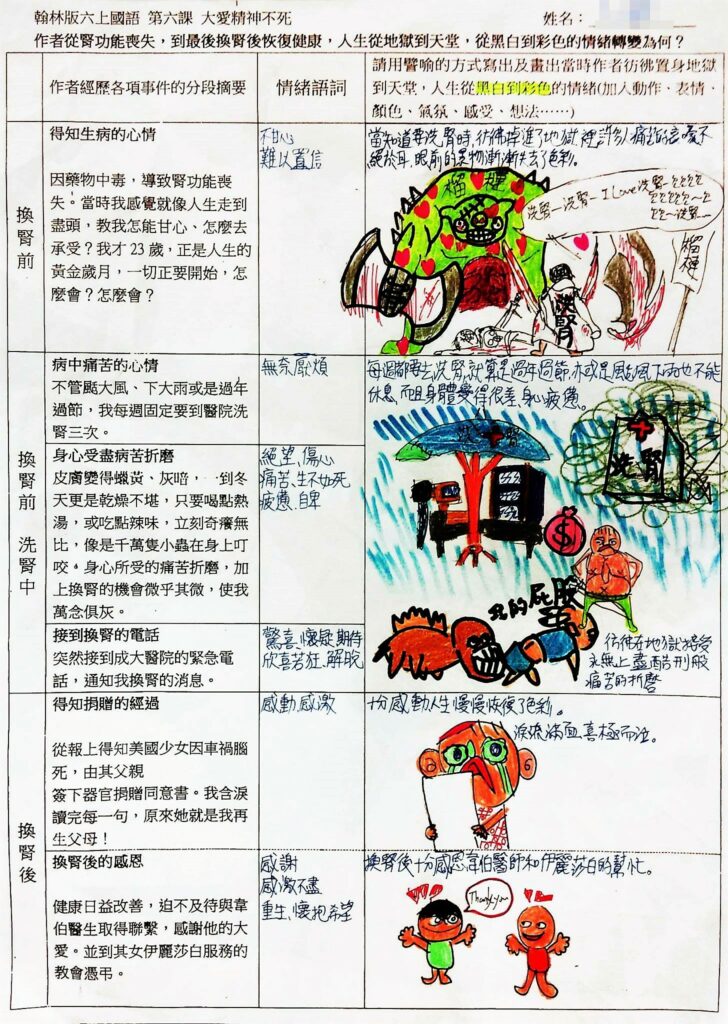 翰林版六上國語 第六課 大愛精神不死 姓名：
作者從腎功能喪失，到最後換腎後恢復健康，人生從地獄到天堂，從黑白到彩色的情緒轉變為何？
作者經歷各項事件的分段摘要
情緒語詞
請用譬喻的方式寫出及畫出當時作者彷彿置身地獄
到天堂，人生從黑白到彩色的情緒(加入動作、表情、
顏色、氣氛、感受、想法……)
換腎前
得知生病的心情
因藥物中毒，導致腎功能喪
失。當時我感覺就像人生走到
盡頭，教我怎能甘心、怎麼去
承受？我才 23 歲，正是人生的
黃金歲月，一切正要開始，怎
麼會？怎麼會？
不甘心
難以置信
當知道要洗腎時,彷彿掉進了地獄裡,許多人痛苦的哀嚎不
絕於耳,眼前的景物漸漸失去了色彩。
洗腎~洗腎~ I Love 洗腎~
洗腎
換腎前 洗腎中
病中痛苦的心情
不管颳大風、下大雨或是過年
過節，我每週固定要到醫院洗
腎三次。
無奈、厭煩
每週都要去洗腎,就算是過年過節,亦或是颳風下雨也不能
休息,而且身體變得很差,身心疲憊。
洗腎
洗腎
$
身心受盡病苦折磨
皮膚變得蠟黃、灰暗，一到冬
天更是乾燥不堪，只要喝點熱
湯，或吃點辣味，立刻奇癢無
比，像是千萬隻小蟲在身上叮
咬。身心所受的痛苦折磨，加
上換腎的機會微乎其微，使我
萬念俱灰。
絕望、傷心
痛苦、生不如死
疲憊、自卑
我的屁股
彷彿在地獄接受
永無上盡酷刑般
痛苦的折磨
接到換腎的電話
突然接到成大醫院的緊急電
話，通知我換腎的消息。
驚喜、懷疑、期待
欣喜若狂、解脫
換腎後
得知捐贈的經過
從報上得知美國少女因車禍腦
死，由其父親
簽下器官捐贈同意書。我含淚
讀完每一句，原來她就是我再
生父母！
感動、感激
十分感動,人生慢慢恢復了色彩。
淚流滿面,喜極而泣。
換腎後的感恩
健康日益改善，迫不及待與韋
伯醫生取得聯繫，感謝他的大
愛。並到其女伊麗莎白服務的
教會憑弔。
感謝
感激不盡
重生、懷抱希望
換腎後十分感恩韋伯醫師和伊麗莎白的幫忙。
Thank you